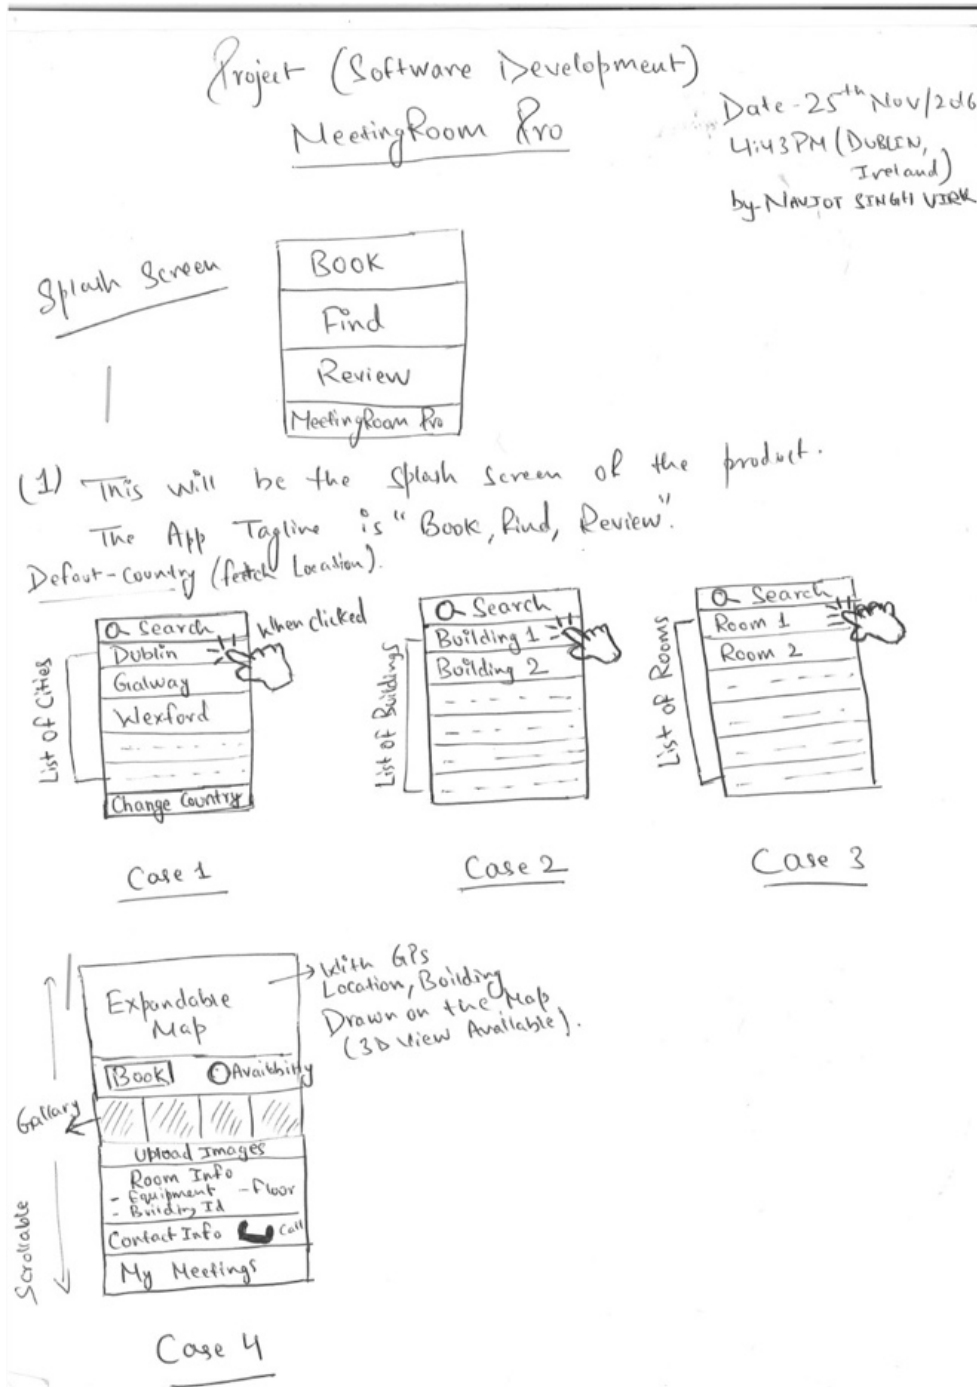 Project (Software Development)
MeetingRoom Pro
Date-25th Nov/2016
4:43PM (DUBLIN,
Ireland)
by-NAVJOT SINGH VIRK
Splash Screen
Book
Find
Review
MeetingRoom Pro
(1) This will be the splash screen of the product.
The App Tagline is "Book, Find, Review".
Defaut-Country (fetch Location).
Search
Dublin
Galway
Wexford
Change Country
List of Cities
When clicked
Case 1
Search
Building 1
Building 2
List of Buildings
Case 2
Search
Room 1
Room 2
List of Rooms
Case 3
Expandable
Map
With GPs
Location, Building
Drawn on the Map
(3D View Available).
Book Availbility
Gallary
Upload Images
Room Info
- Equipment - Floor
- Building Id
Contact Info Call
My Meetings
Scrollable
Case 4